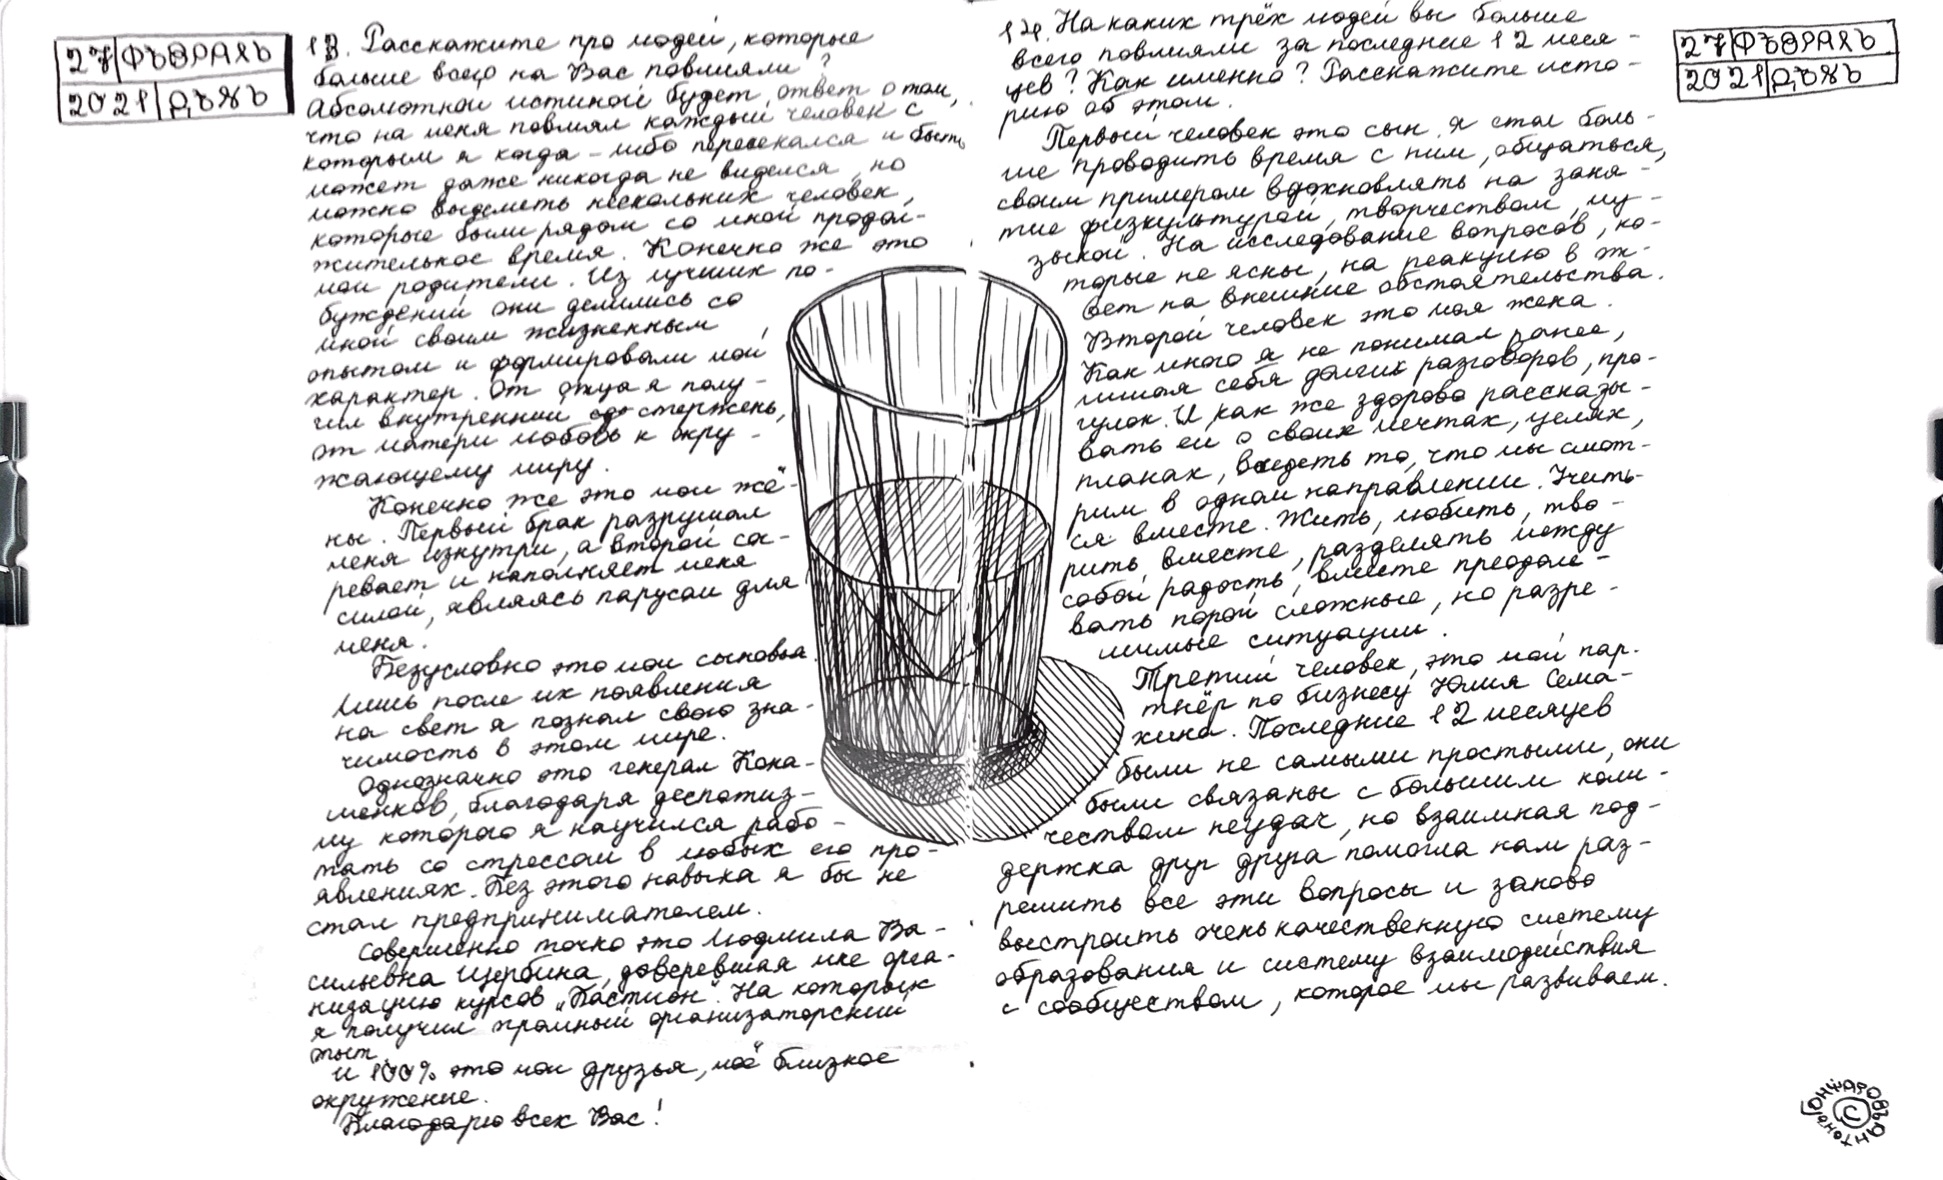 27 ФЪВРАЛЬ
2021 ДЪЯЬ
13. Расскажите про людей, которые
больше всего на Вас повлияли?
Абсолютной истиной будет ответ о том,
что на меня повлиял каждый человек с
которым я когда-либо пересекался и быть
может даже никогда не виделся, но
можно выделить нескольких человек,
которые были рядом со мной продол-
жительное время. Конечно же это
мои родители. Из лучших по-
буждений они делились со
мной своим жизненным
опытом и формировали мой
характер. От отца я полу-
чил внутренний стержень,
от матери любовь к окру-
жающему миру.
Конечно же это мои жё-
ны. Первый брак разрушал
меня изнутри, а второй со-
ревает и наполняет меня
силой, являясь парусом для
меня.
Безусловно это мои сыновья.
Лишь после их появления
на свет я познал свою зна-
чимость в этом мире.
Однозначно это генерал Кона-
шенков, благодаря деспотиз-
му которого я научился рабо-
тать со стрессом в любых его про-
явлениях. Без этого навыка я бы не
стал предпринимателем.
Совершенно точно это Людмила Ва-
сильевна Щербина, доверевшая мне орга-
низацию курсов "Бастион". На которых
я получил огромный организаторский
опыт.
И 100% это мои друзья, моё близкое
окружение.
Благодарю всех Вас!
14. На каких трёх людей вы больше
всего повлияли за последние 12 меся-
цев? Как именно? Расскажите исто-
рию об этом.
Первый человек это сын. Я стал боль-
ше проводить время с ним, общаться,
своим примером вдохновлять на заня-
тие физкультурой, творчеством, му-
зыкой. На исследование вопросов, ко-
торые не ясны, на реакцию в
ответ на внешние обстоятельства.
Второй человек это моя жена.
Как много я не понимал ранее,
лишая себя долгих разговоров, про-
гулок. И как же здорово рассказы-
вать ей о своих мечтах, целях,
планах, видеть то, что мы смот-
рим в одном направлении. Учить-
ся вместе. Жить, любить, тво-
рить вместе, разделять между
собой радость, вместе преодоле-
вать порой сложные, но разре-
шимые ситуации.
Третий человек, это мой пар-
тнёр по бизнесу Юлия Сема-
хина. Последние 12 месяцев
были не самыми простыми, они
были связаны с большим коли-
чеством неудач, но взаимная под-
держка друг друга помогла нам раз-
решить все эти вопросы и заново
выстроить очень качественную систему
образования и систему взаимодействия
с сообществом, которое мы развиваем.
27 ФЪВРАЛЬ
2021 ДЪЯЬ
ГОНЧАРОВЪ АНТОНЪ
©